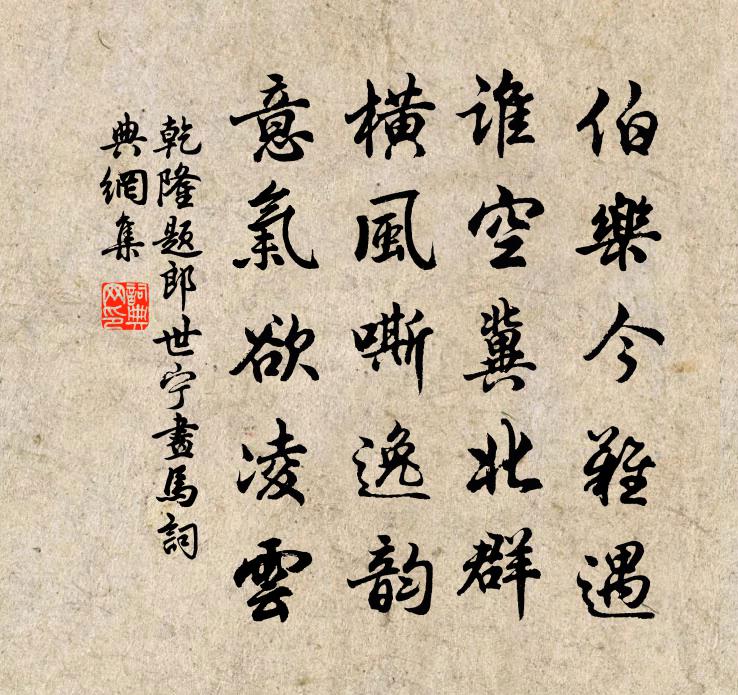 伯樂今難遇
誰空冀北群
橫風嘶逸韵
意氣欲凌雲
乾隆题郎世宁畫馬詞
典網集
詞典
网印